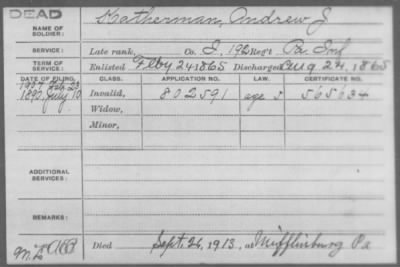 DEAD
NAME OF SOLDIER: Katherman, Andrew J.
SERVICE: Late rank, Co. I, 192 Reg't Pa Inf
TERM OF SERVICE: Enlisted Feby 24 1865 Discharged Aug 24, 1865
DATE OF FILING. CLASS. APPLICATION NO. LAW. CERTIFICATE NO.
1907 Feb 23
1890, July 10 Invalid, 802591 age 565634
Widow,
Minor,
ADDITIONAL SERVICES:
REMARKS:
Died Sept. 26, 1913, at Mifflinburg Pa